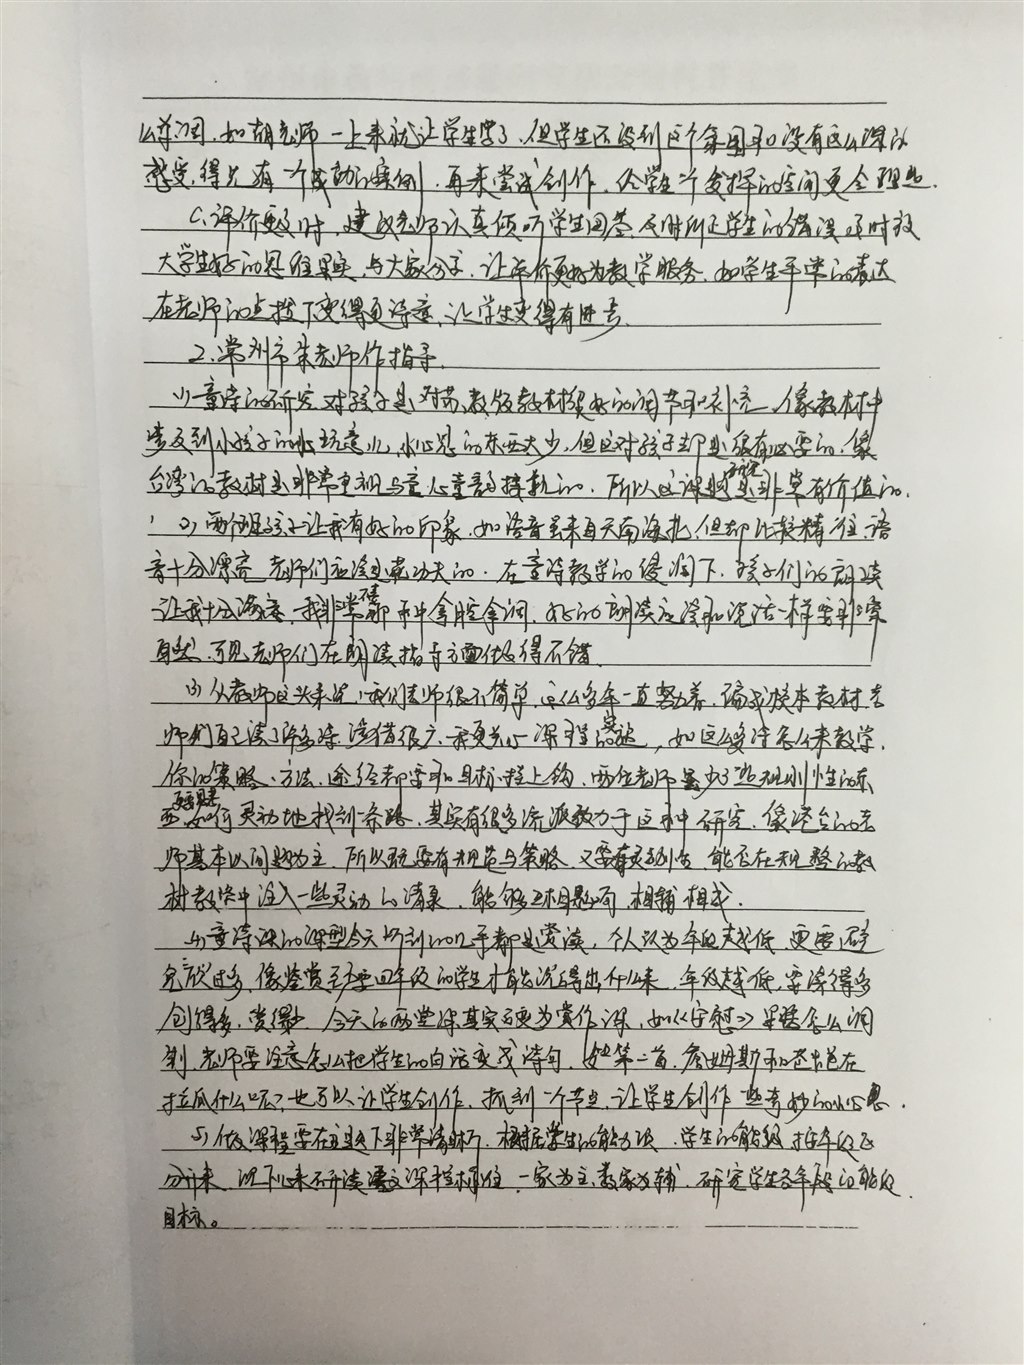 如胡老师一上来就让学生学了，但学生还没到这个氛围和没有这么深的
感受，得先有一个成功的案例，再来尝试创作，给学生一个发挥的空间更会理想。
C.评价更及时，建议老师认真倾听学生回答，及时纠正学生的错误，及时放
大学生好的思维果实，与大家分享，让评价更好为教学服务，如学生平常的表达
在老师的点拨下变得更诗意，让学生变得有进步。
2.常州市朱老师作指导。
(1)童诗的研究对孩子是对苏教版教材很好的调节和补充，像教材中
涉及到小孩子的小玩意儿，小心思的东西太少，但这对孩子却是很有必要的，像
台湾的教材是非常重视与童心童话接轨的，所以这课题研究是非常有价值的。
(2)两个班孩子让我有好的印象，如语音虽来自天南海北，但却比较精准，语
音十分漂亮，老师们应该是花功夫的。在童诗教学的浸润下，孩子们的朗读
让我十分满意，我非常害怕拿腔拿调，好的朗读应该和说话一样要非常
自然，可见老师们在朗读指导方面做得不错。
(3)从教师这头来说，我们老师很不简单，这么多年一直努力着，编成校本教材，老
师们自己读了许多诗，涉猎很广，我更关心课程的，如这么多诗怎么来教学，
你的策略、方法、途径都要和目标挂上钩，两位老师虽少了些规则性的东
西，如何灵动地找到一条路，其实有很多流派致力于这其中研究，像港台的老
师基本以问题为主，所以既要有规范与策略，又要有灵动，能否在规整的教
材教学中注入一些灵动的清泉，能够互相影响，相辅相成。
(4)童诗课的课型今天听到的几乎都是赏读，个人认为年段越低，更要避
免说过多，像鉴赏至少要四年级的学生才能说得出什么来，年级越低，要读得多，
创得多，赏得少，今天的两堂课其实更为赏作课，如《安慰》果酱怎么调
制，老师要注意怎么把学生的白话变成诗句，如第二首，詹姆斯和芭芭在
拉瓜什么呢？也可以让学生创作，抓到一个节点，让学生创作一些奇妙的心思。
(5)做课程要在主题下非常清晰，根据学生的能力项，学生的能级按年段区
分开来，沉下心来研读语文课程标准，一家为主，数家为辅，研究学生各年段的能级
目标。